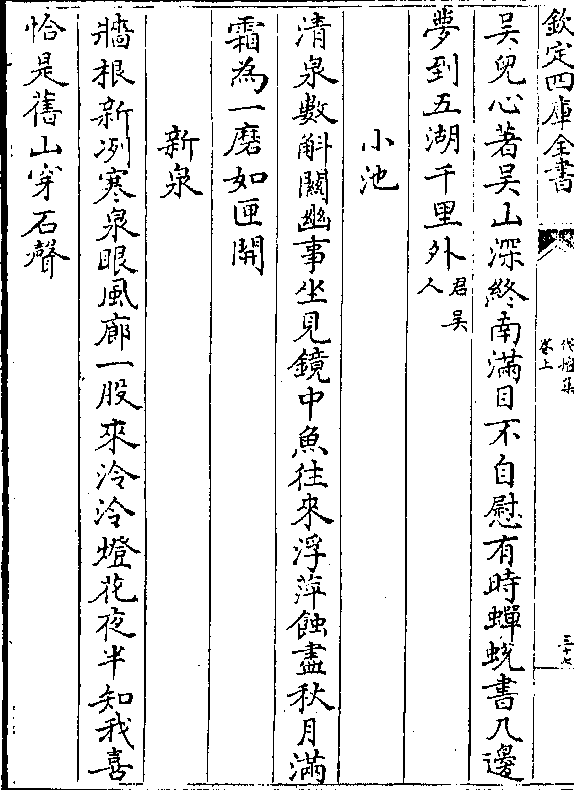 欽定四庫全書
伐檀集
卷上
三十七
吳兒心著吳山深終南滿目不自慰有時蟬蛻書几邊
夢到五湖千里外君吳人
小池
清泉數斛關幽事坐見鏡中魚往來浮萍蝕盡秋月滿
霜為一磨如匣開
新泉
牆根新冽寒泉眼風廊一股來泠泠燈花夜半知我喜
恰是舊山穿石聲